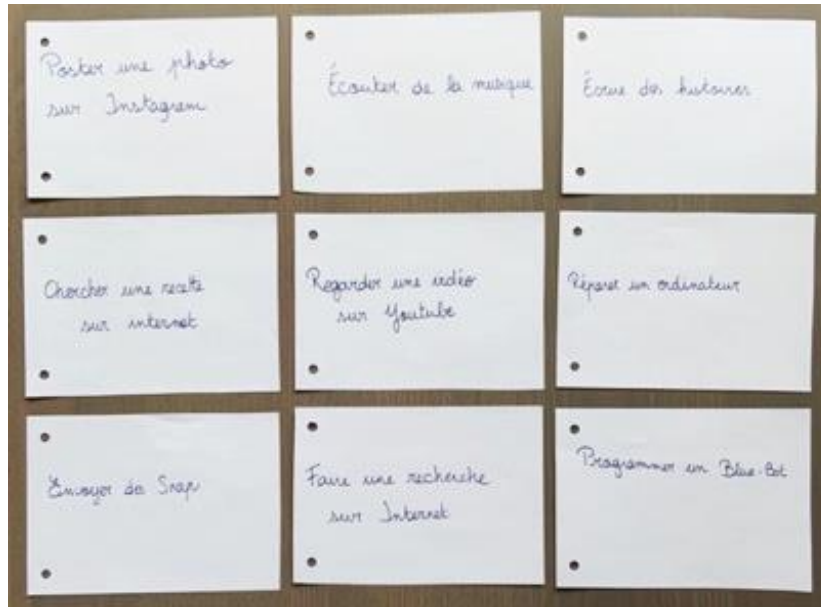 Poster une photo
sur Instagram
Écouter de la musique
Écrire des histoires
Chercher une recette
sur internet
Regarder une vidéo
sur Youtube
Réparer un ordinateur
Envoyer des Snap
Faire une recherche
sur Internet
Programmer un Blue-Bot